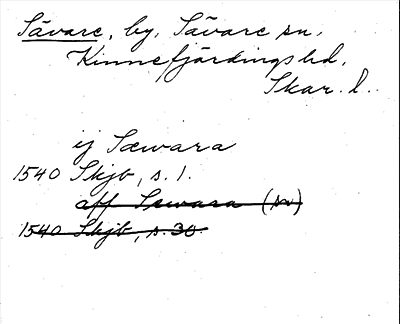 Sävare, by, Sävare sn.
Kinnefjärdings hd.
Skar. l.
ij Sæwara
1540 Skjb, s. 1.
aff Sæwara (sn)
1540 Skjb, s. 30.